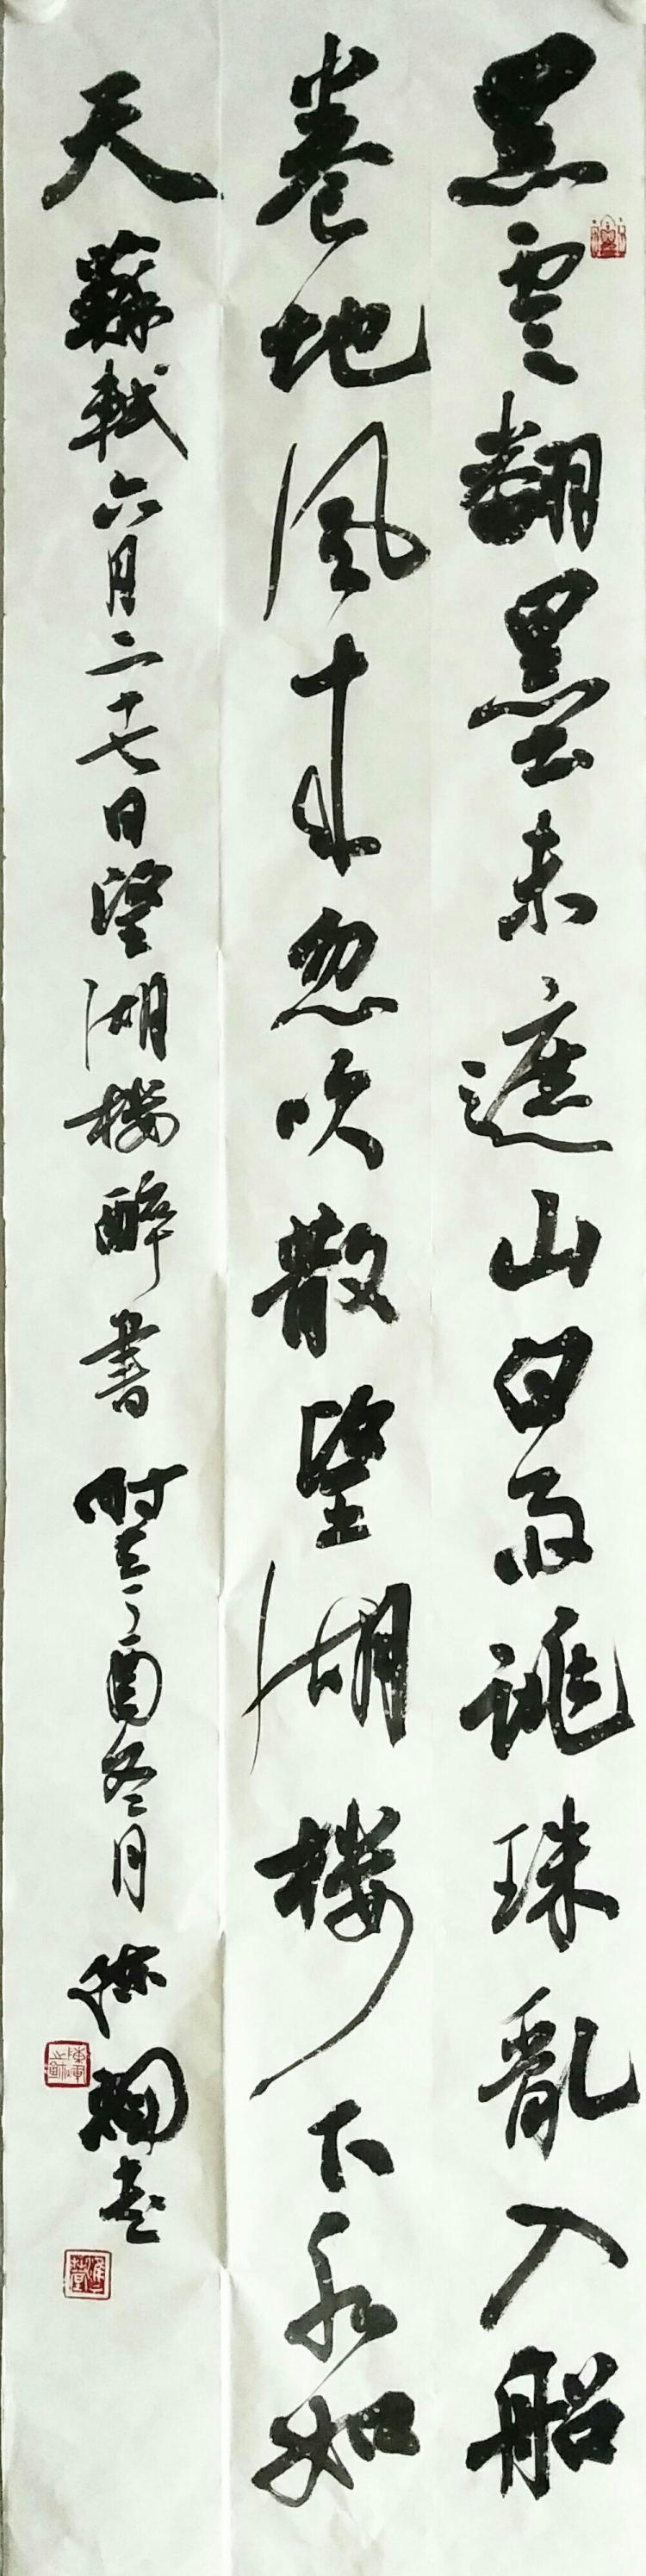 黑雲翻墨未遮山白雨跳珠亂入船
卷地風来忽吹散望湖楼下水如
天 蘇軾六月二十七日望湖楼醉書 时丁酉冬月